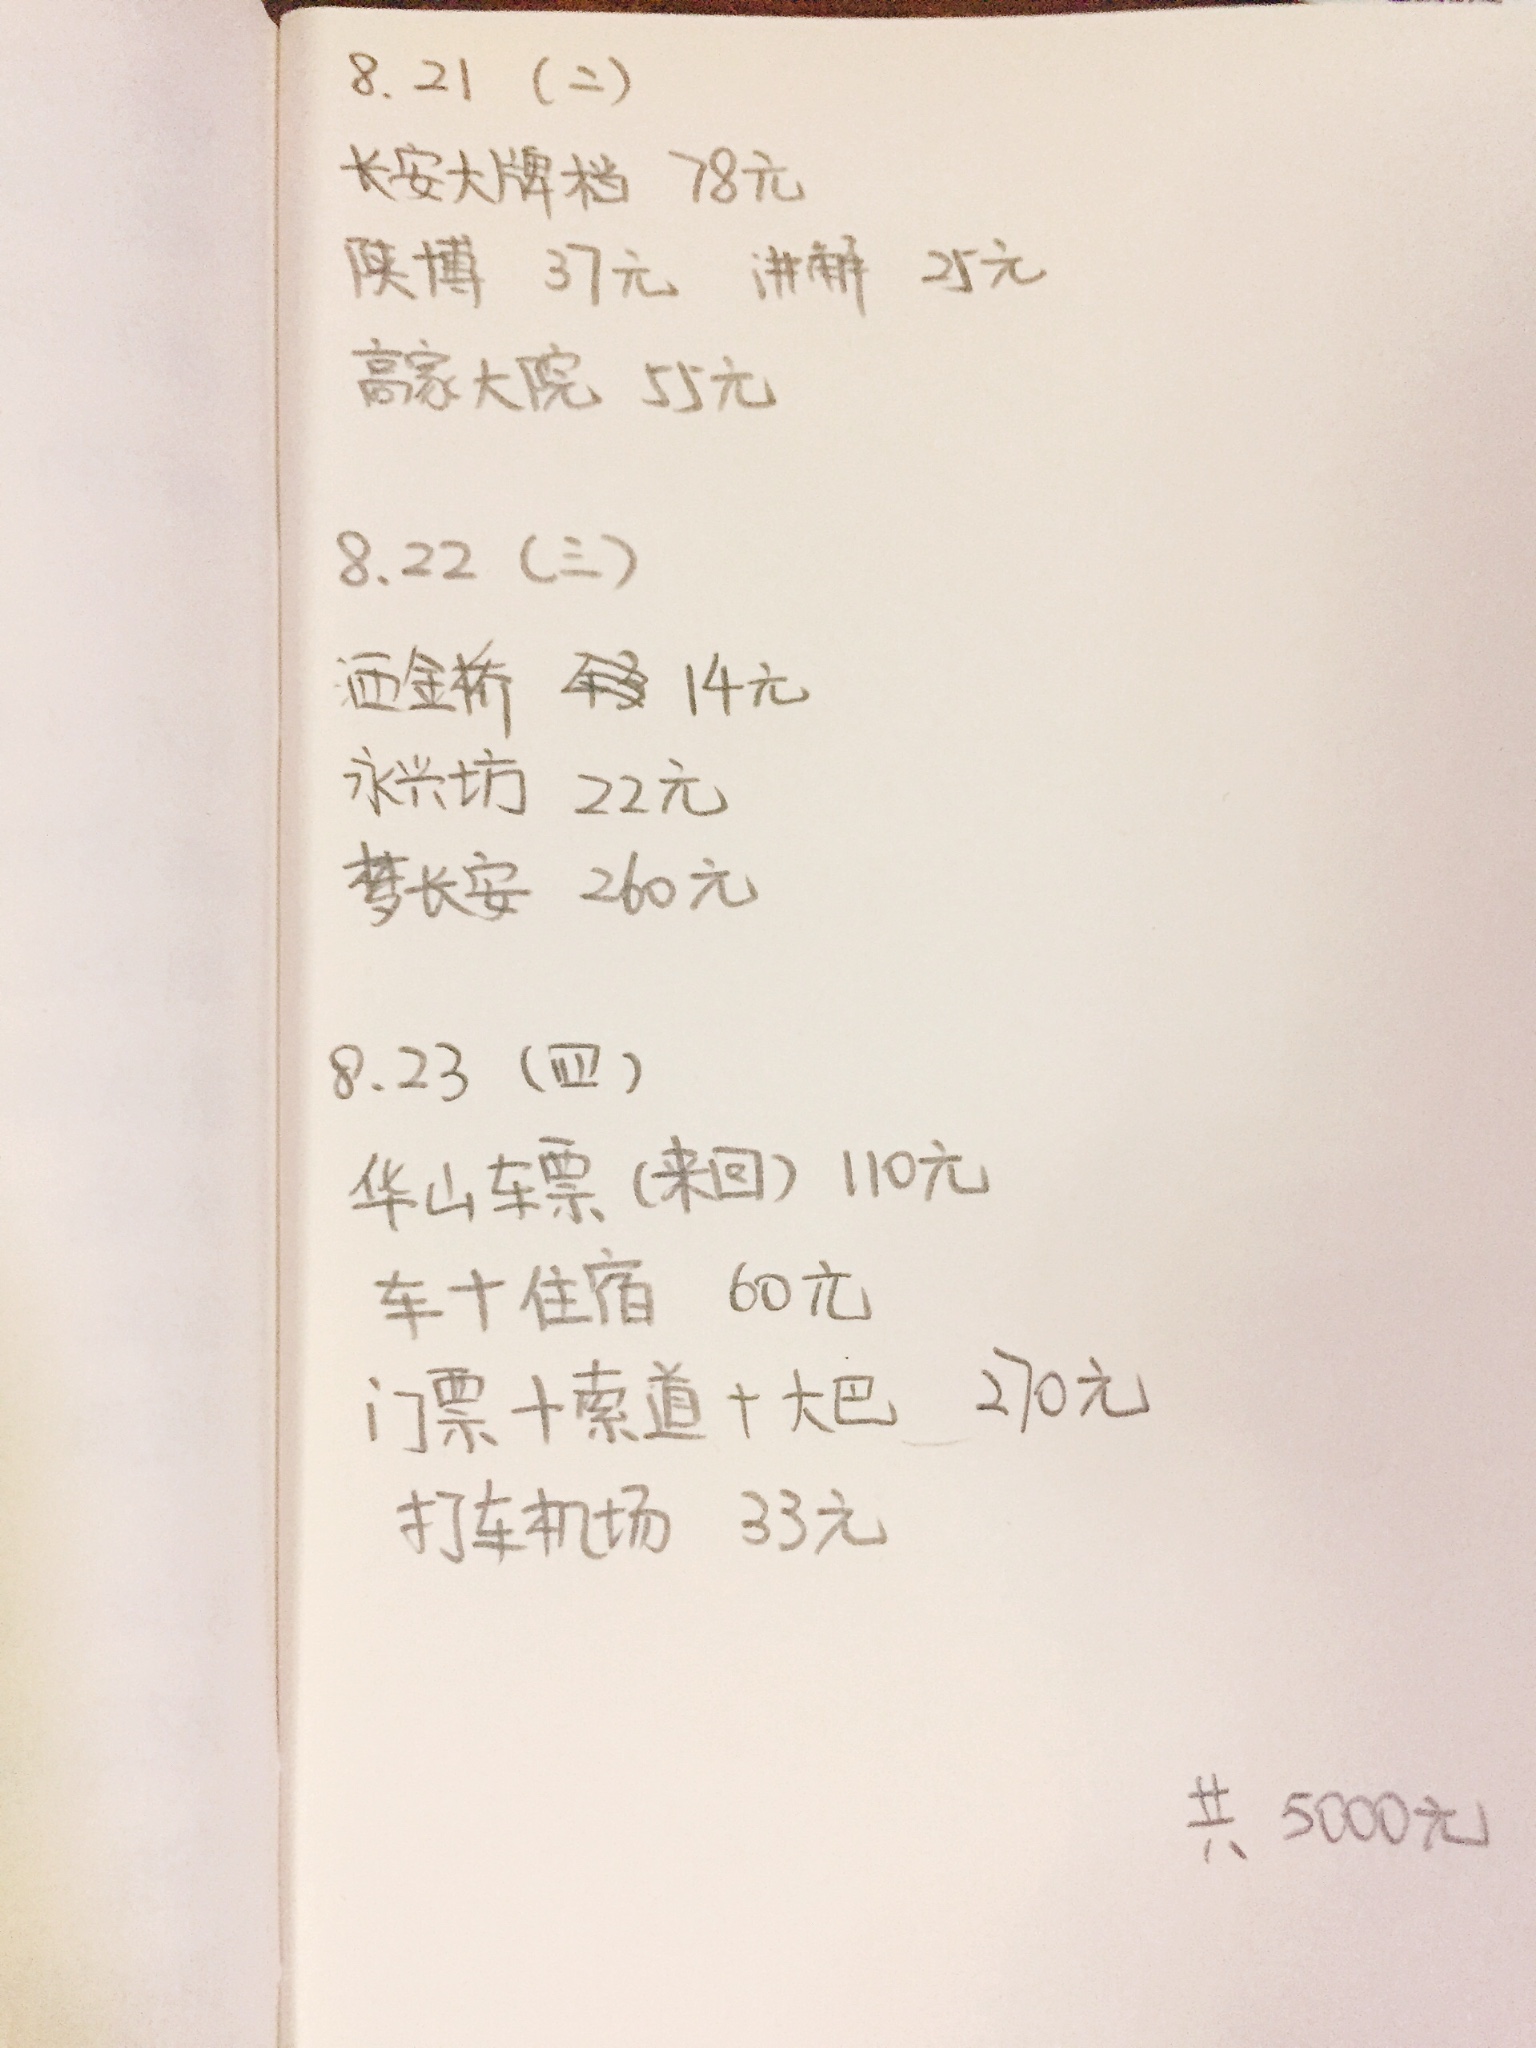 8.21 (二)
长安大牌档 78元
陕博 37元 讲解 25元
高家大院 55元
8.22 (三)
洒金桥 14元
永兴坊 22元
梦长安 260元
8.23 (四)
华山车票(来回) 110元
车+住宿 60元
门票+索道+大巴 270元
打车机场 33元
共 5000元